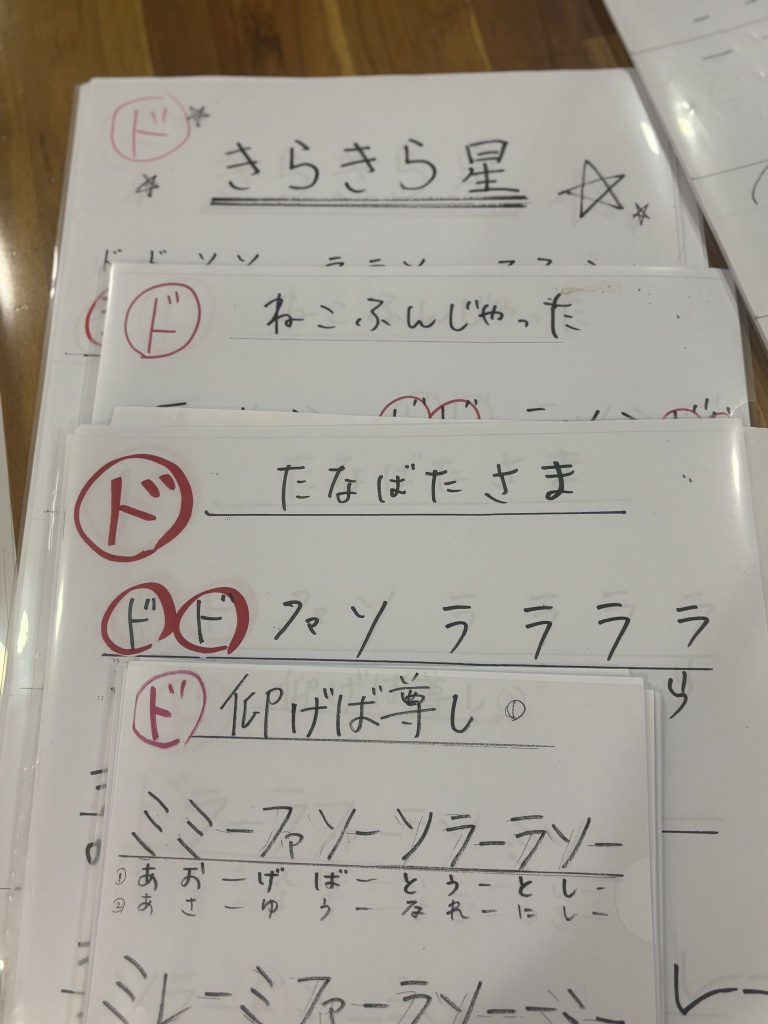 ド
きらきら星
ド
ねこふんじゃった
ド
たなばたさま
ド ド ファ ソ ラ ラ ラ ラ
ド 仰げば尊し ①
ミミーファソーソラーラソー
① あおーげばーとうーとしー
② あさーゆうーなれーにしー
ミレーミファーラソーーミー